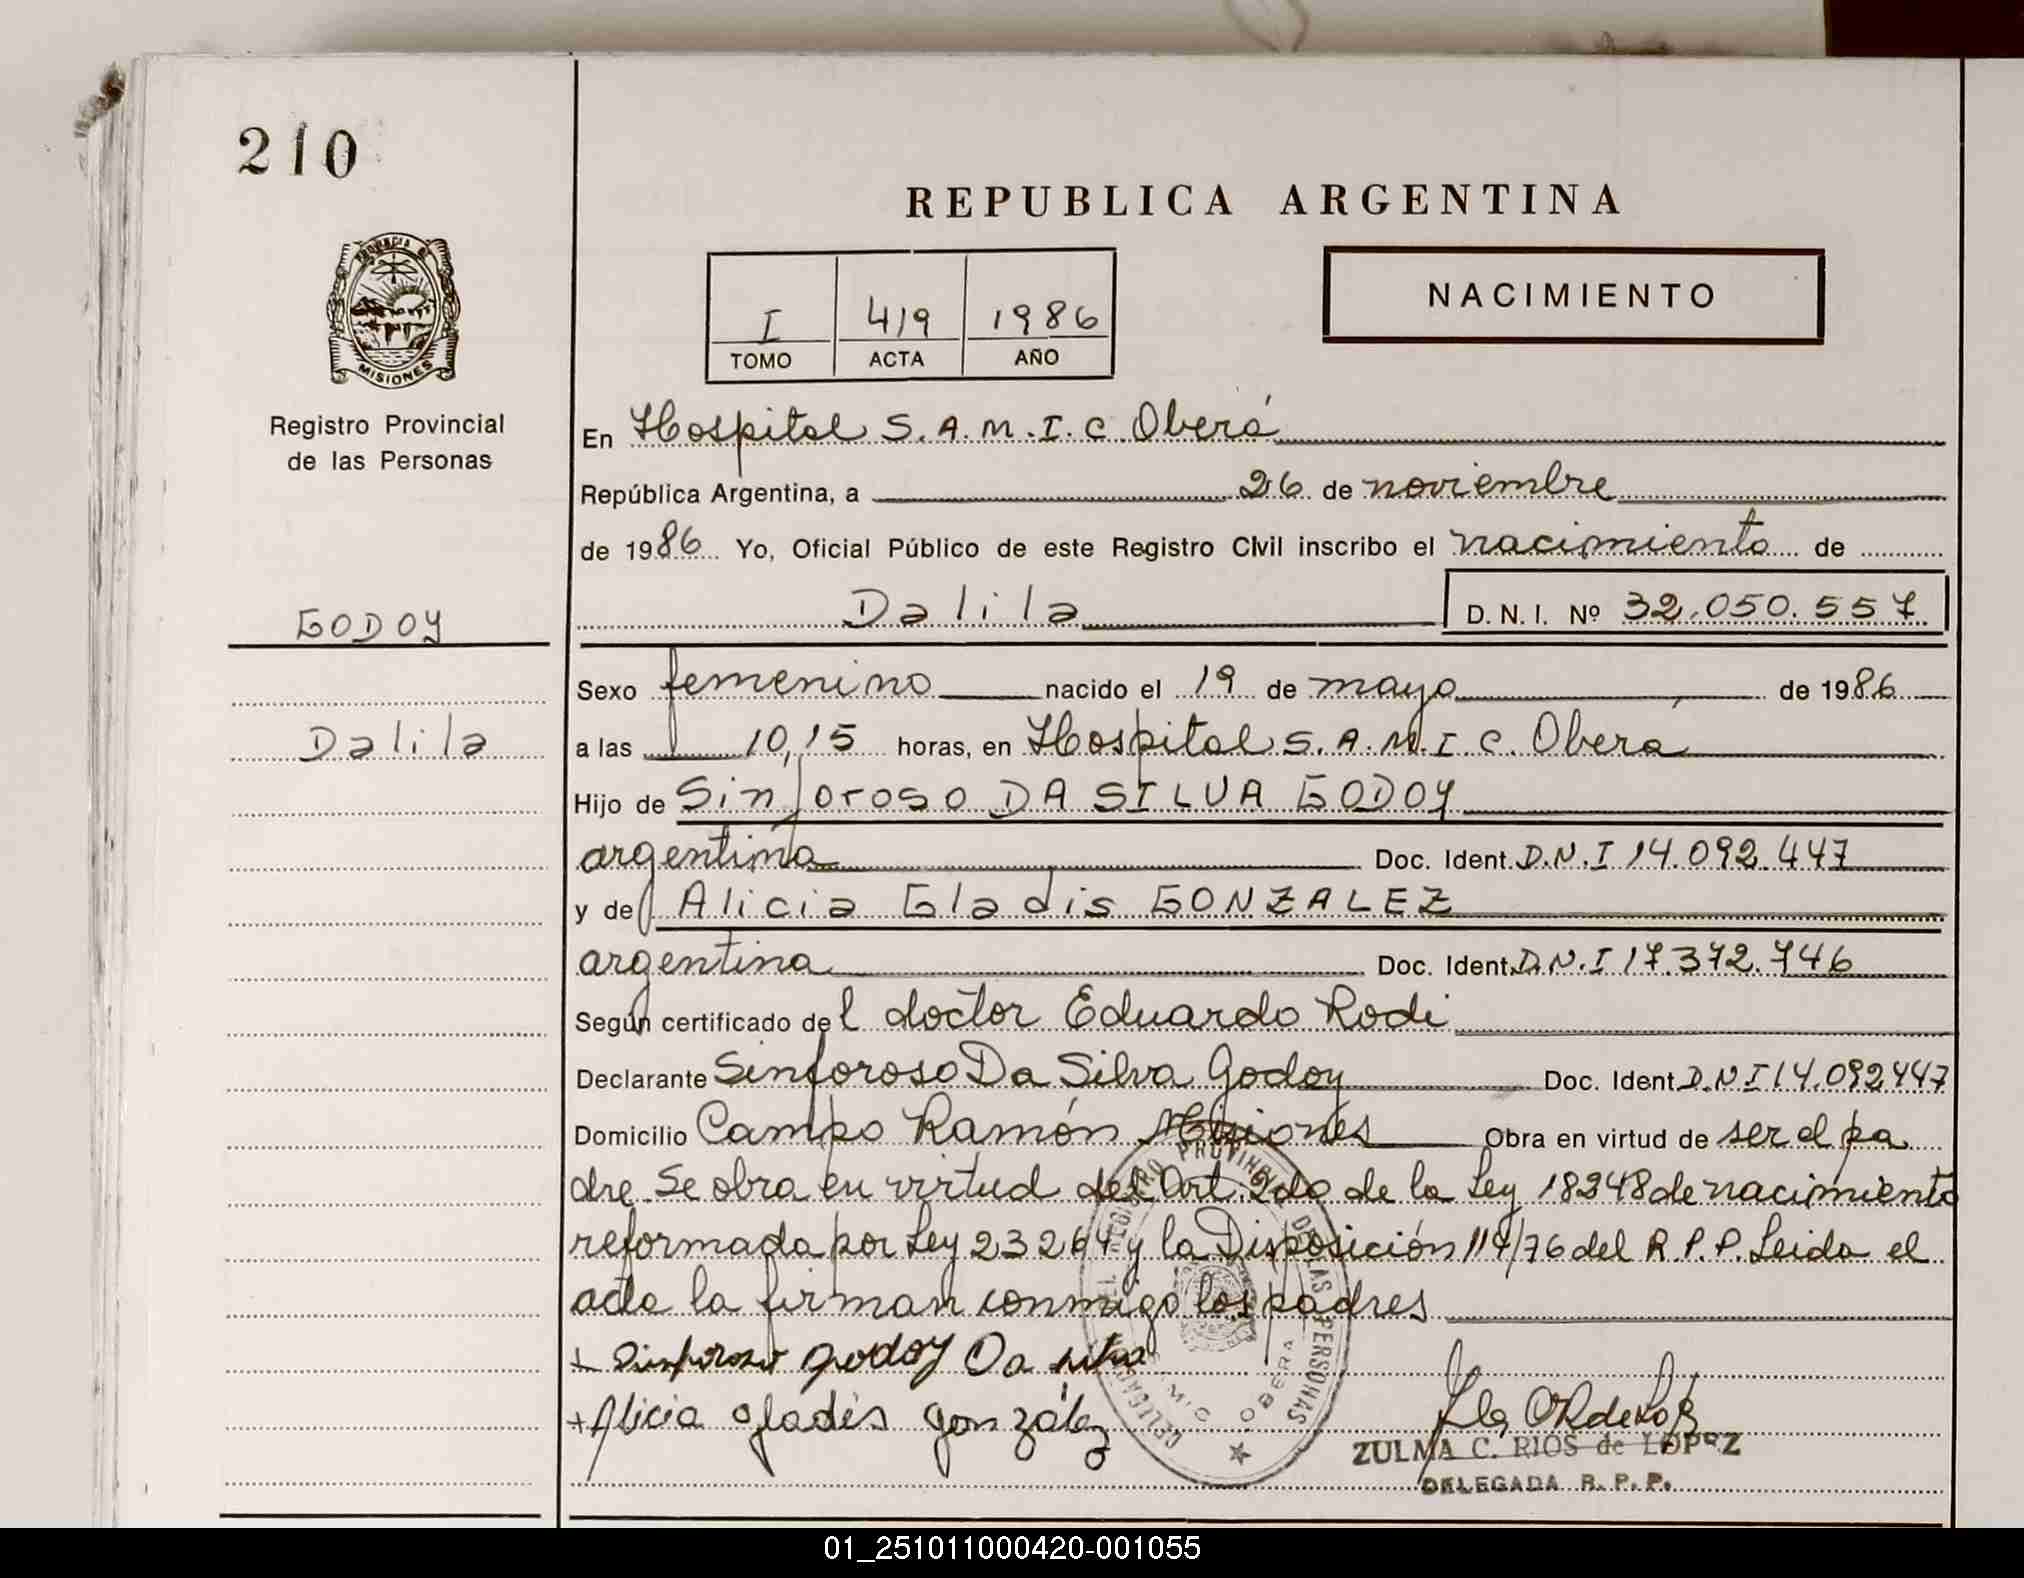 210
REPUBLICA ARGENTINA
PROVINCIA DE
MISIONES
Registro Provincial
de las Personas
I 419 1986
TOMO ACTA AÑO
NACIMIENTO
En Hospital S.A.M.I.C Oberá
República Argentina, a 26 de noviembre
de 1986 Yo, Oficial Público de este Registro Civil inscribo el nacimiento de
Dalila D.N.I. Nº 32.050.557
GODOY
Dalila
Sexo femenino nacido el 19 de mayo de 1986
a las 10,15 horas, en Hospital S.A.M.I.C. Oberá
Hijo de Sinforoso DA SILVA GODOY
argentina Doc. Ident. D.N.I 14.092.447
y de Alicia Gladis GONZALEZ
argentina Doc. Ident. D.N.I 17.372.746
Según certificado del doctor Eduardo Rodi
Declarante Sinforoso Da Silva Godoy Doc. Ident. D.N.I 14.092.447
Domicilio Campo Ramón Misiones Obra en virtud de ser el pa
dre Se obra en virtud del Art. 2do de la Ley 18248 de nacimiento
reformada por Ley 23264 y la Disposición 114/76 del R.P.P. Leida el
acta la firman conmigo los padres
Sinforoso Godoy Da silva
Alicia gladis gonzález
REGISTRO PROVINCIAL DE LAS PERSONAS
OBERA
ZULMA C. RIOS de LOPEZ
DELEGADA R.P.P.
01_251011000420-001055